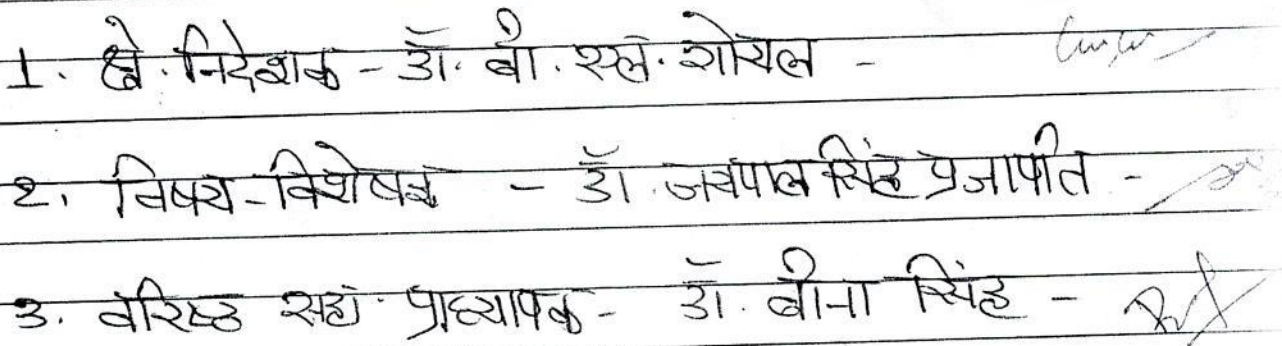 1. क्षे. निदेशक - डॉ. बी. एल. गोयल -
2. विषय-विशेषज्ञ - डॉ. जयपाल सिंह प्रजापति -
3. वरिष्ठ सहा. प्राध्यापक - डॉ. बीना सिंह -